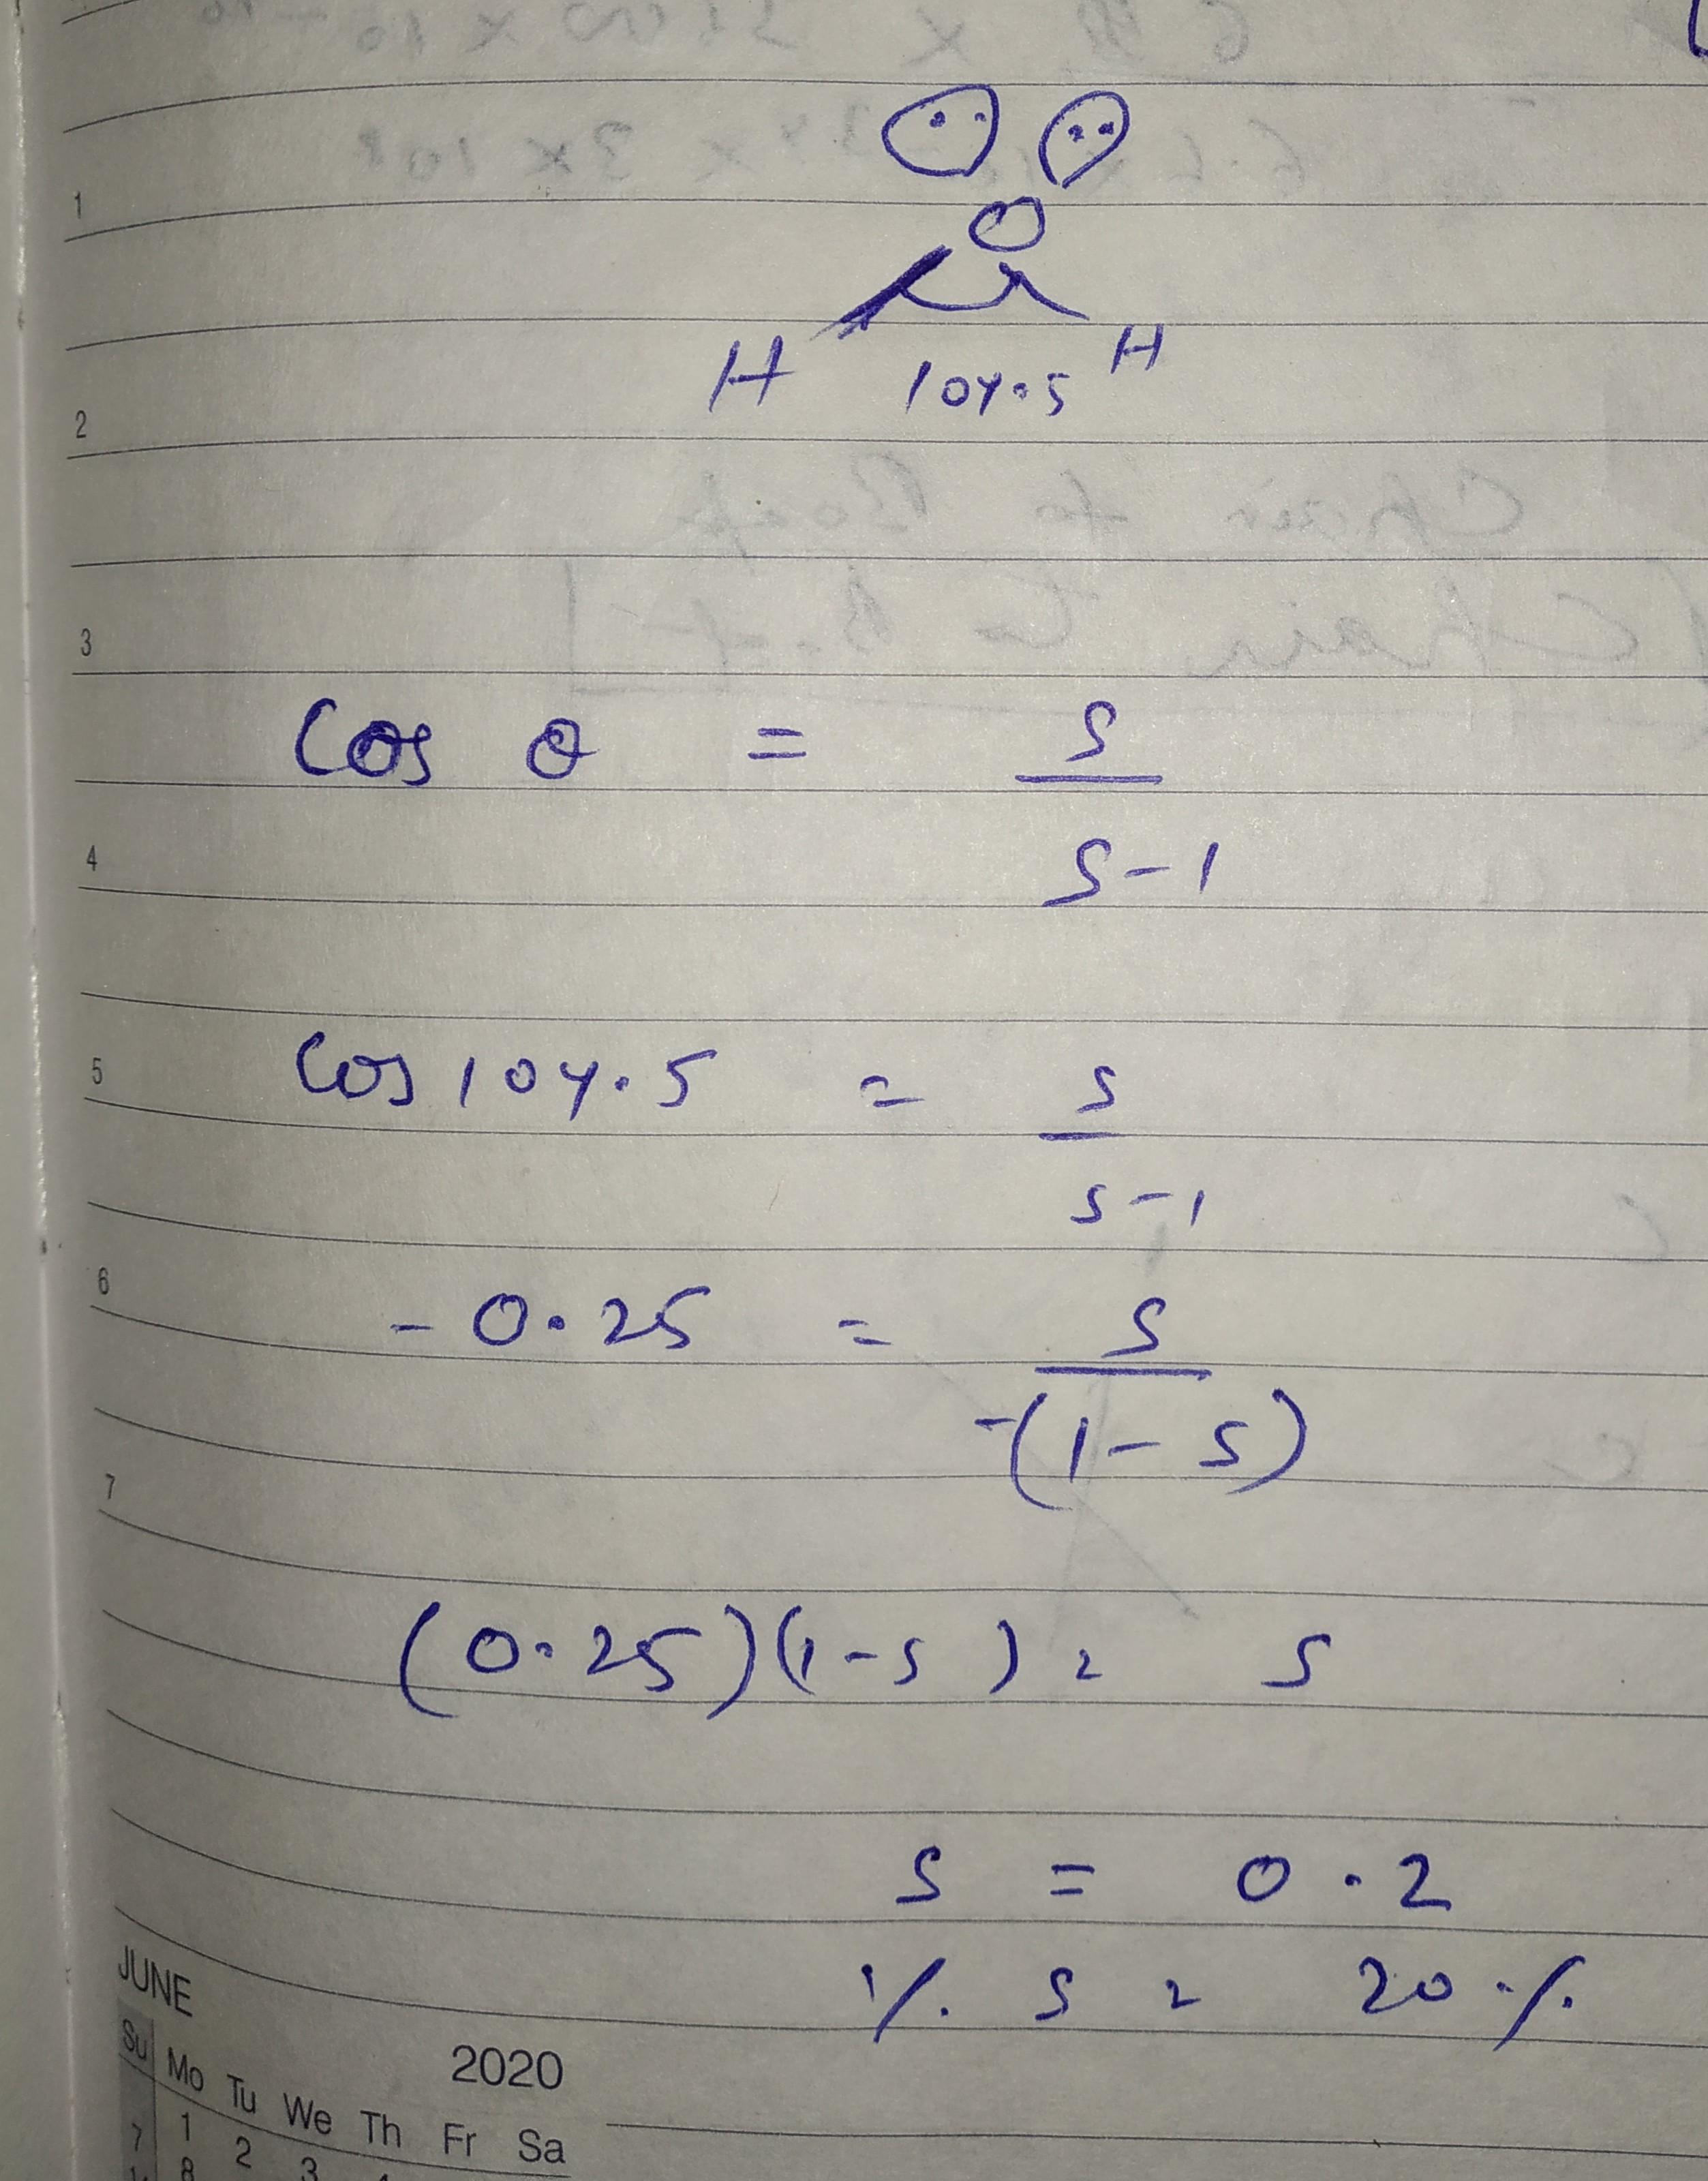 1
O
H 104.5 H
2
3
Cos θ = s
4
s-1
5
Cos 104.5 = s
s-1
6
- 0.25 = s
-(1-s)
7
(0.25)(1-s) = s
s = 0.2
% s = 20 %
JUNE
2020
Su Mo Tu We Th Fr Sa
1 2 3
7 8